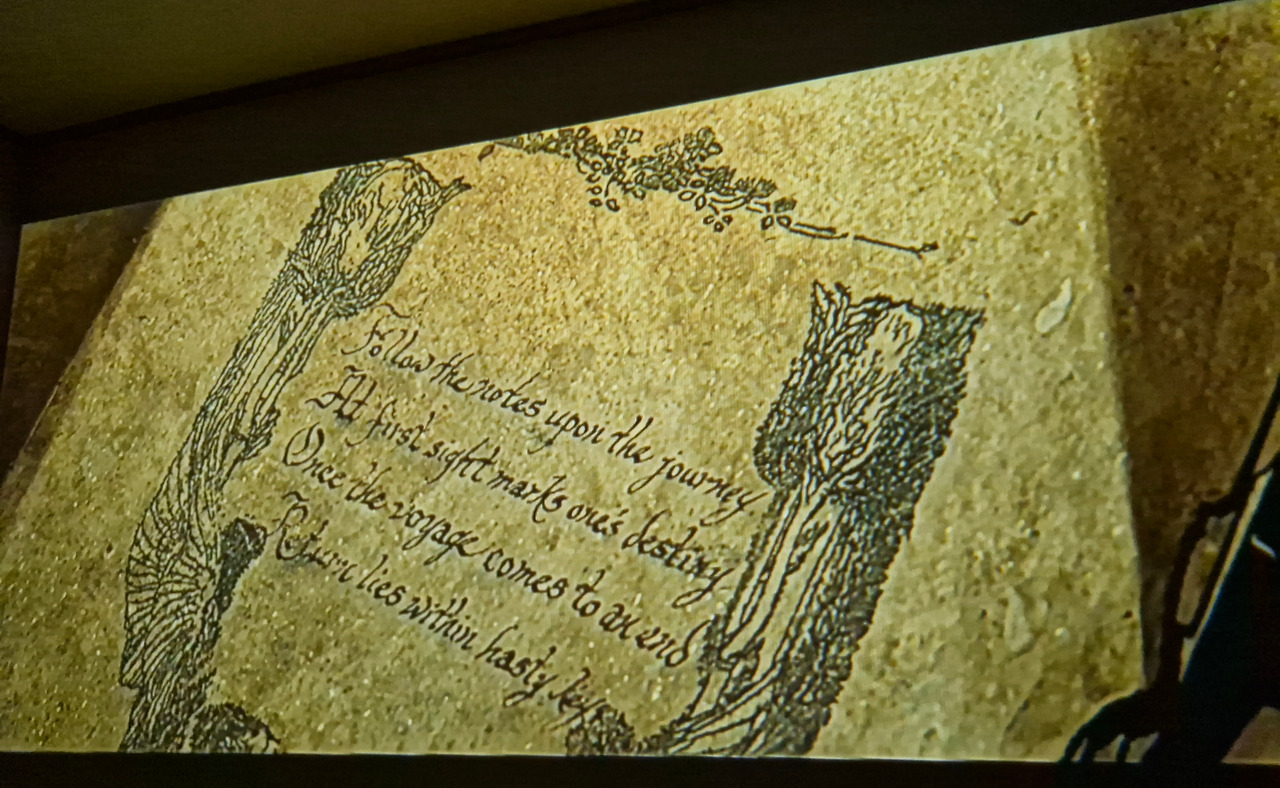 Follow the notes upon the journey
At first sight marks one's destiny
Once the voyage comes to an end
Return lies within hasty key